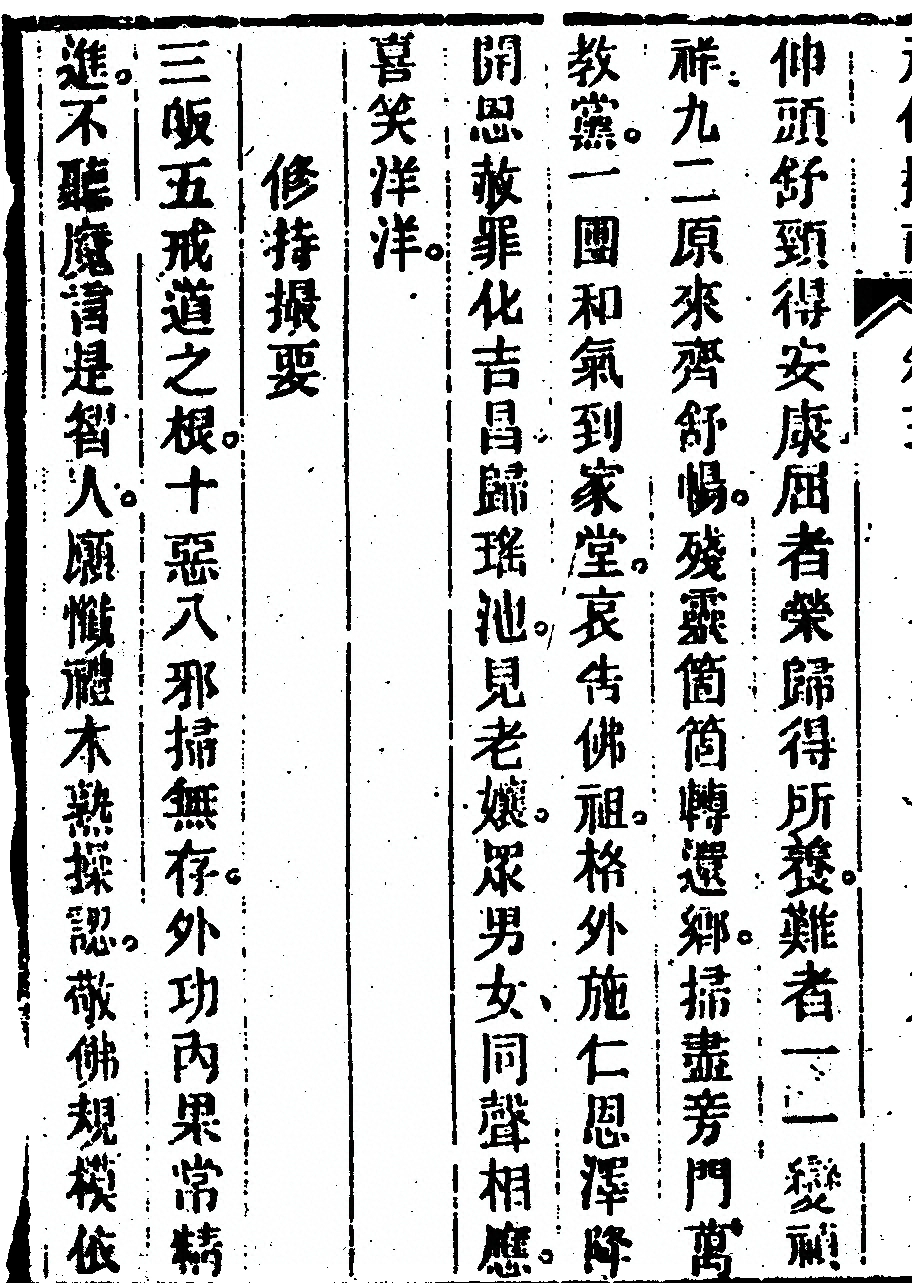 伸頭舒頸得安康屈者榮歸得所養。難者一一變禎
祥九二原來齊舒暢。殘靈箇箇轉還鄉。掃盡旁門萬
教黨。一團和氣到家堂。哀告佛祖。格外施仁恩澤降
開恩赦罪化吉昌歸瑤池。見老孃。眾男女、同聲相應。
喜笑洋洋。
修持撮要
三皈五戒道之根。十惡八邪掃無存。外功內果常精
進。不聽魔言是智人。願懺禮本熟操認。敬佛規模依